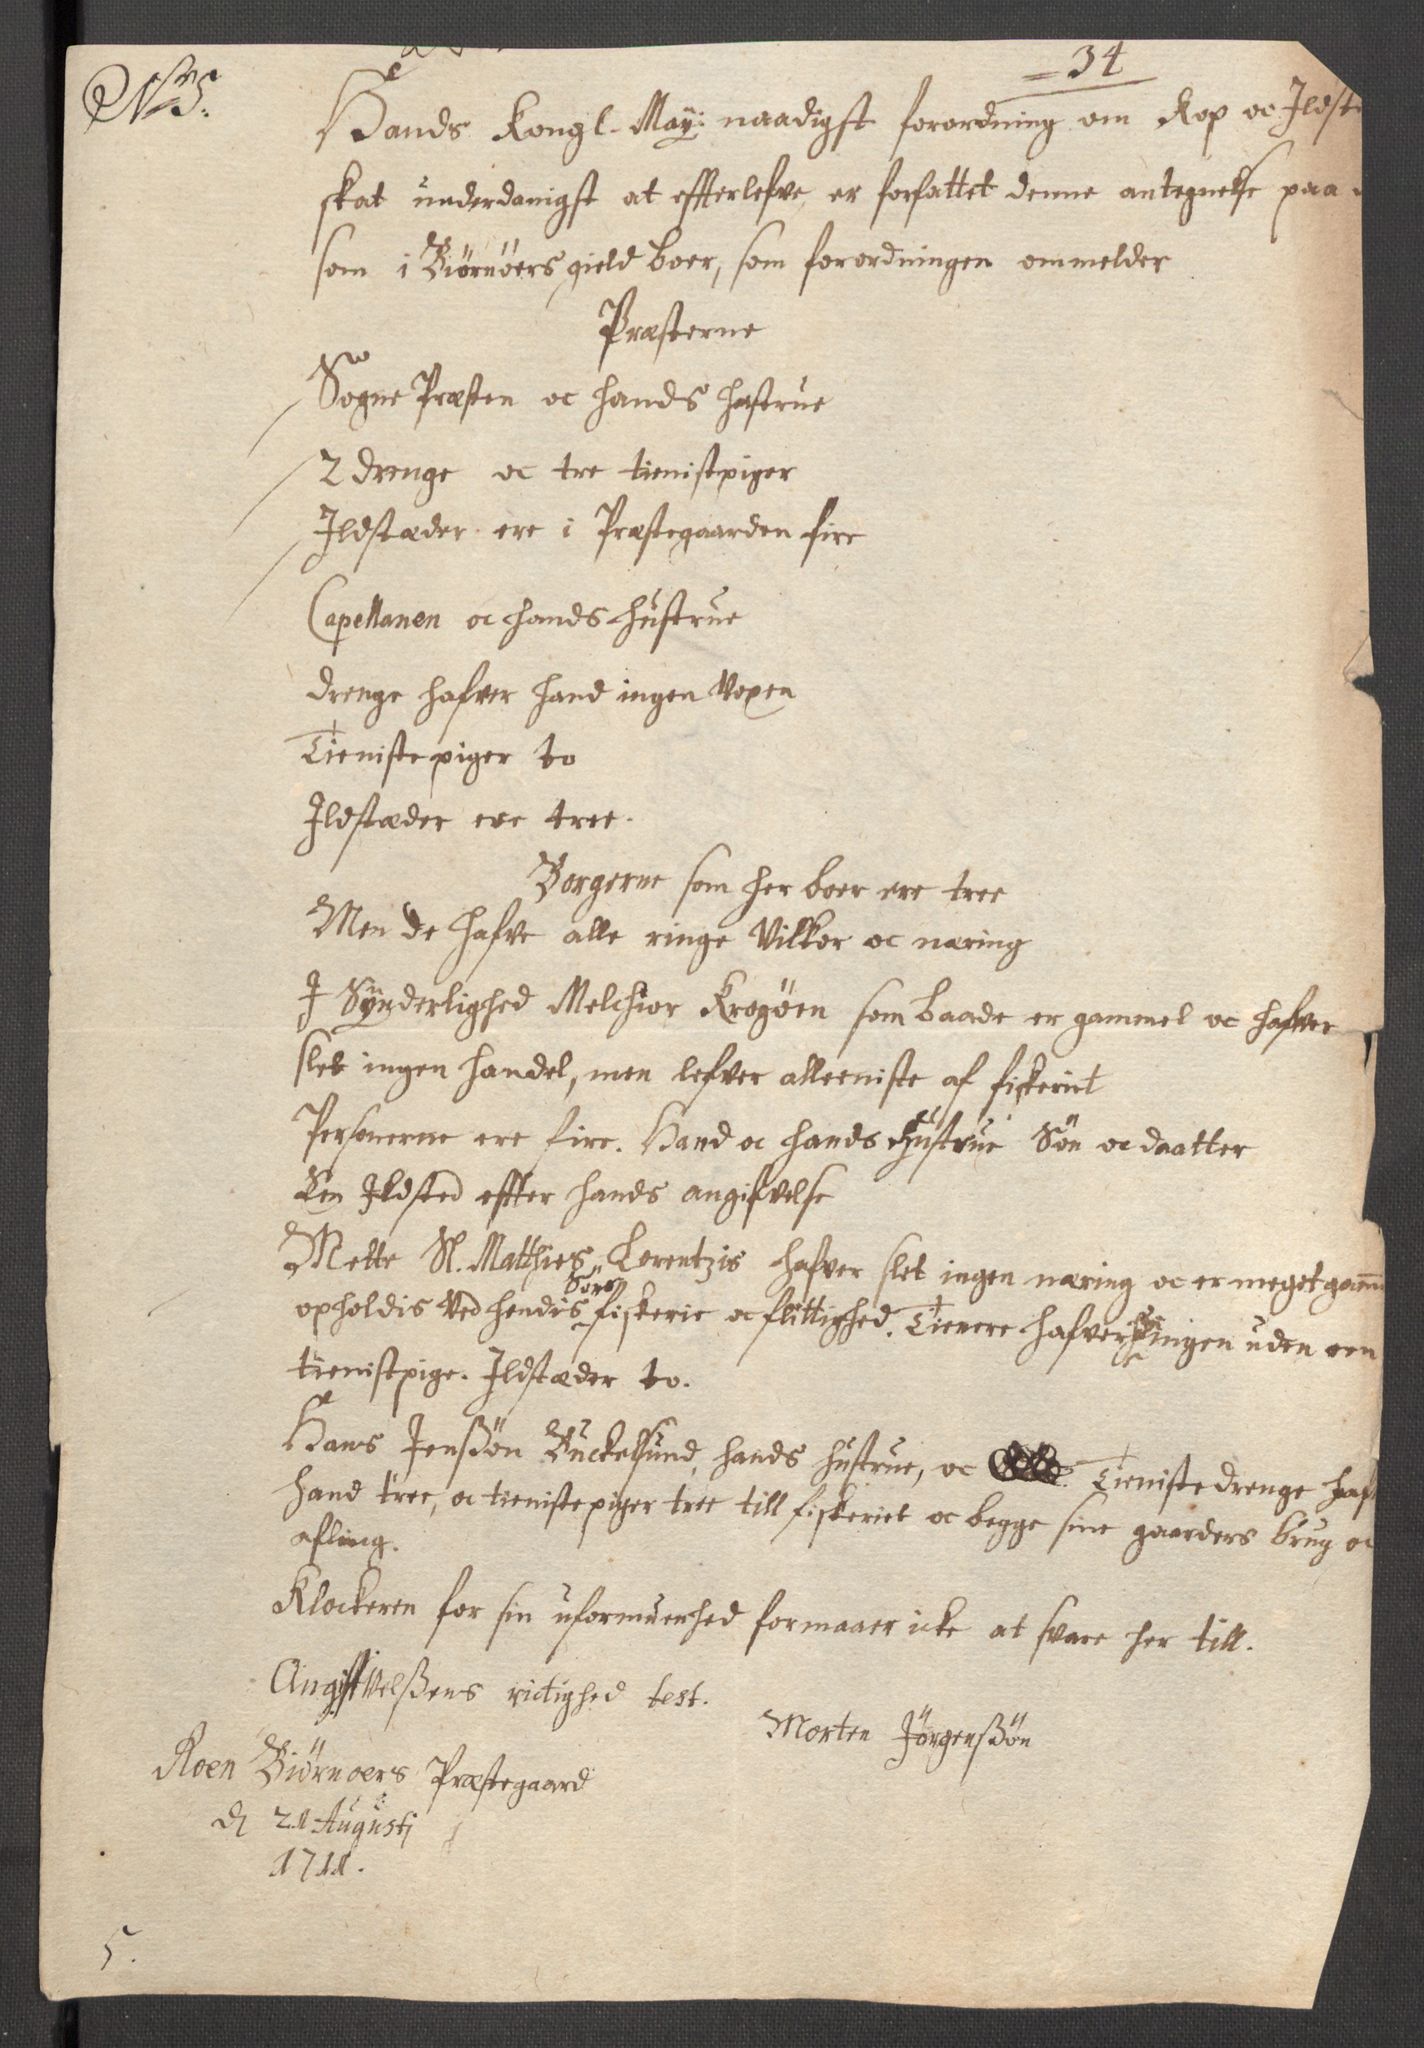 No 5.
34
Hands Kongl. May: naadigst forordning om Kop oc Ildst
skat underdanigst at effterlefve, er forfattet denne antegnelse paa
som i Biörnöers gield boer, som forordningen ommelder
Præsterne
Sogne Præsten oc hands hustrue
2 drenge oc tre tienistpiger
Ildstæder ere i Præstegaarden fire
Capellanen oc hands hustrue
drenge hafver hand ingen Voxen
Tieniste piger to
Ildstæder ere tree.
Borgerne som her boer ere tree
Men de hafve alle ringe Vilkor oc næring
I Synderlighed Melchior Krogöen som baade er gammel oc hafver
slet ingen handel, men lefver alleeniste af fiskeriet
Personerne ere fire. Hand oc hands Hustrue Sön oc daatter
Een Ildsted effter hands angifvelse
Mette Sl. Matthies Lorentzis hafver slet ingen næring oc er meget gam̄
opholdis Ved hendis Söns fiskerie oc flittighed. Tienere hafver hun ingen uden een
tienistpige. Ildstæder to.
Hans Jenßön Buckelsund, hands hustrue, oc Tieniste drenge haf
hand tree, oc tienistepiger tree till fiskeriet oc begge sine gaarders brug oc
afling.
Klockeren for sin uformuenhed formaaer icke at svare her till.
Angifvelßens rictighed test.
Morten Jörgenßön
Roen Biörnoers Præstegaard
d 21 Augustj
1711.
5.